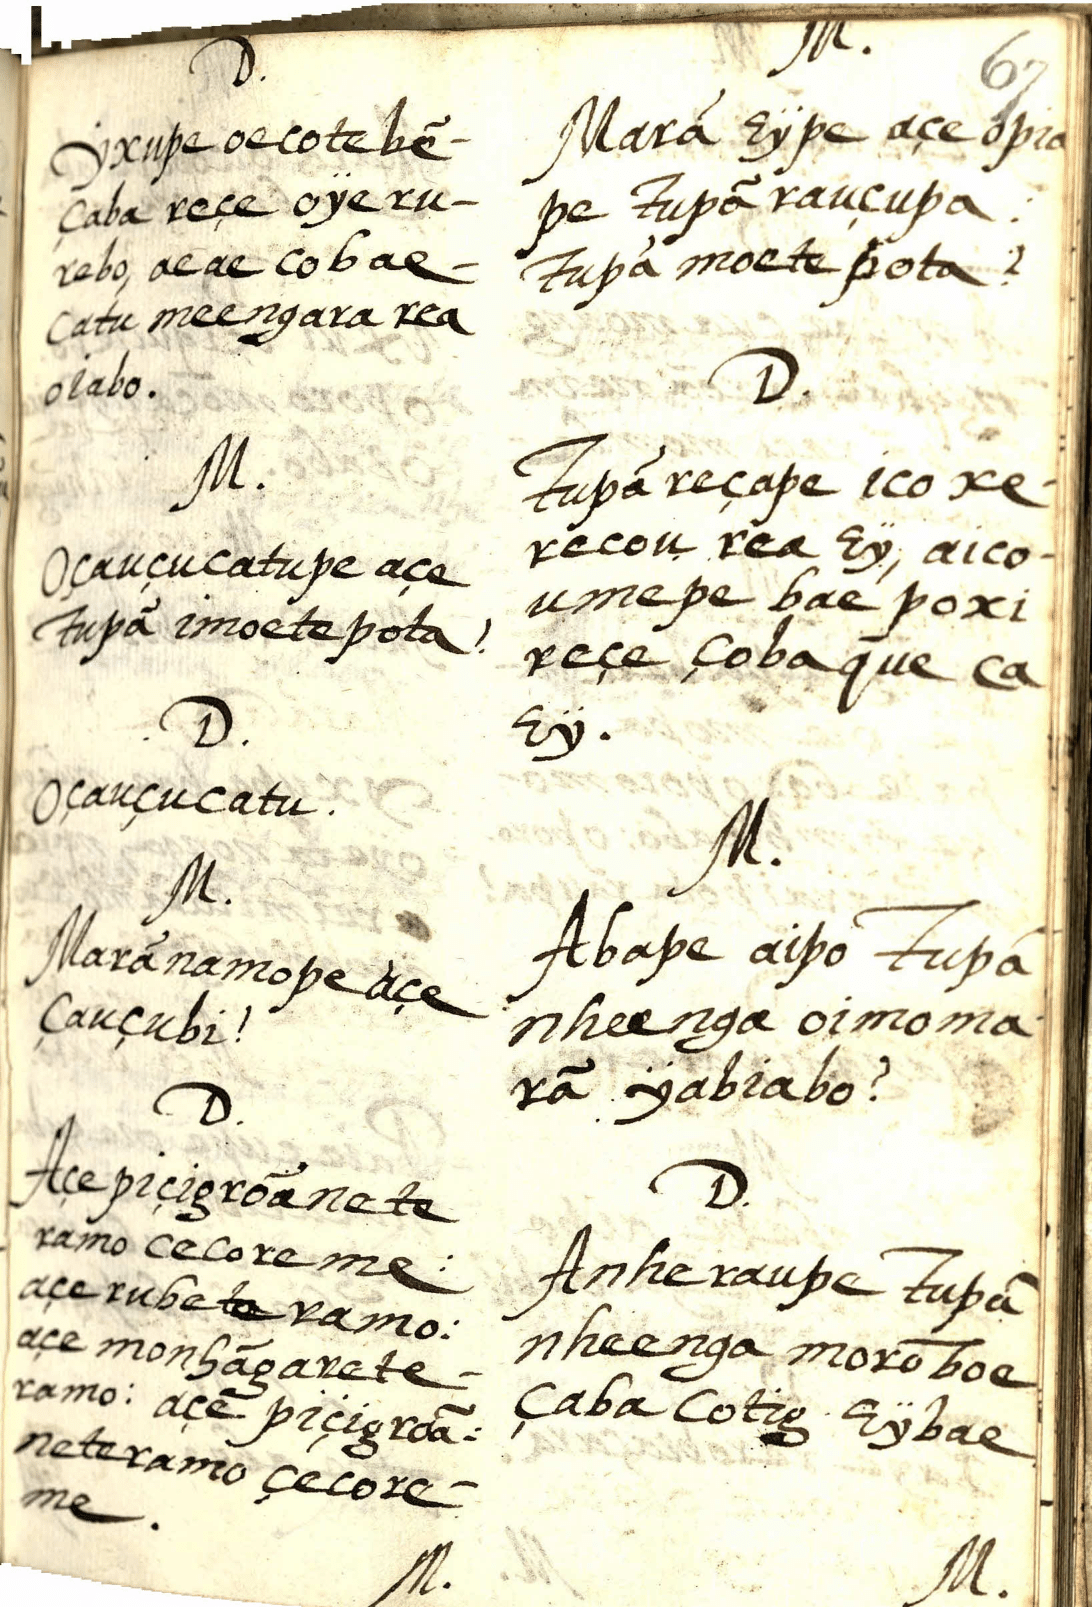 D.
ÿxupe oecotebẽ-
çaba reçe oÿeru-
rebo, aeae cobae-
catu meengara rea
oiabo.
M.
Oçauçucatupe açe
tupã imoetepota!
D.
Oçauçucatu.
M.
Marãnamope açe
çauçubi!
D.
Açe piçigrõanete
ramo cecoreme:
açe rubete ramo:
açe monhãgarete-
ramo: açe piçigrõã:
neteramo çecore-
me.
M.
M.
67
Marã Eÿpe açe opia
pe tupã rauçupa:
tupã moete pota?
D.
Tupã reçape ico xe-
recou rea Eÿ, aico-
umepe bae poxi
reçe çobaque ca
Eÿ.
M.
Abape aipo Tupã
nheenga oimoma
rã ÿabiabo?
D.
Anheraupe Tupã
nheenga morõboe
çaba cotig Eÿbae
M.